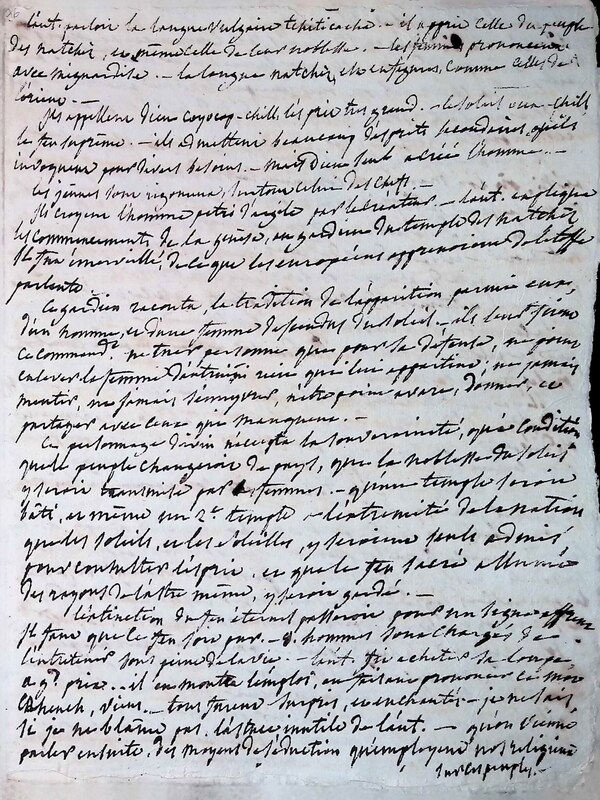 l'aut. parloit la langue vulgaire tchiticacha. – il apprit celle du peuple
des natchez, et même celle de leur noblesse. – les femmes prononcent
avec mignardise. – la langue natchez, est en figures, comme celles de
l'orient. –
Ils appellent dieu coyocop-chill, l'esprit très grand. – le soleil oua-chill
le feu suprême. – ils admettent beaucoup d'esprits secondaires, qu'ils
invoquent pour divers besoins. – mais dieu seul a créé l'homme. –
les jeûnes sont rigoureux, surtout celui des chefs. –
Ils croyent l'homme petri d'argile par le créateur. – l'aut. expliqua
les commencements de la génèse, au gardien du temple des natchez
Il fut émerveillé, de ce que les européens apprenoient de l'étoffe
parlante
Ce gardien raconta, la tradition de l'apparition parmi eux,
d'un homme, et d'une femme descendus du soleil. – ils leur firent
ce commandt. ne tuer personne que pour sa défense, ne point
enlever la femme d'autrui, rien qui leur appartint; ne jamais
mentir, ne jamais s'enyvrer, n'être point avare, donner, et
partager avec ceux qui manquent. –
Ce personnage divin accepta la souveraineté, qu'à condition
que le peuple changeroit de pays, que la noblesse du soleil
y seroit transmise par les femmes. – qu'un temple seroit
bâti, et même un 2e. temple à l'extremité de la nation
que les soleils, et les soleilles, y seroient seuls admis
pour consulter l'esprit, et que le feu sacré allumé
des rayons de l'astre même, y seroit gardé. –
l'extinction du feu éternel passeroit pour un signe affreux
Il faut que le feu soit pur. – 8. hommes sont chargés de
l'entretenir sous peine de la vie. – l'aut. fit acheter sa loupe
à gd. prix. – il en montra l'emploi, en faisant prononcer ce mot
Cheheuch, viens. – tous furent surpris, et enchantés. – je ne sais
si je ne blâme pas, l'astuce inutile de l'aut. – qu'on vienne
parler ensuite, des moyens de séduction qu'employent nos religieux
sur les peuples. –